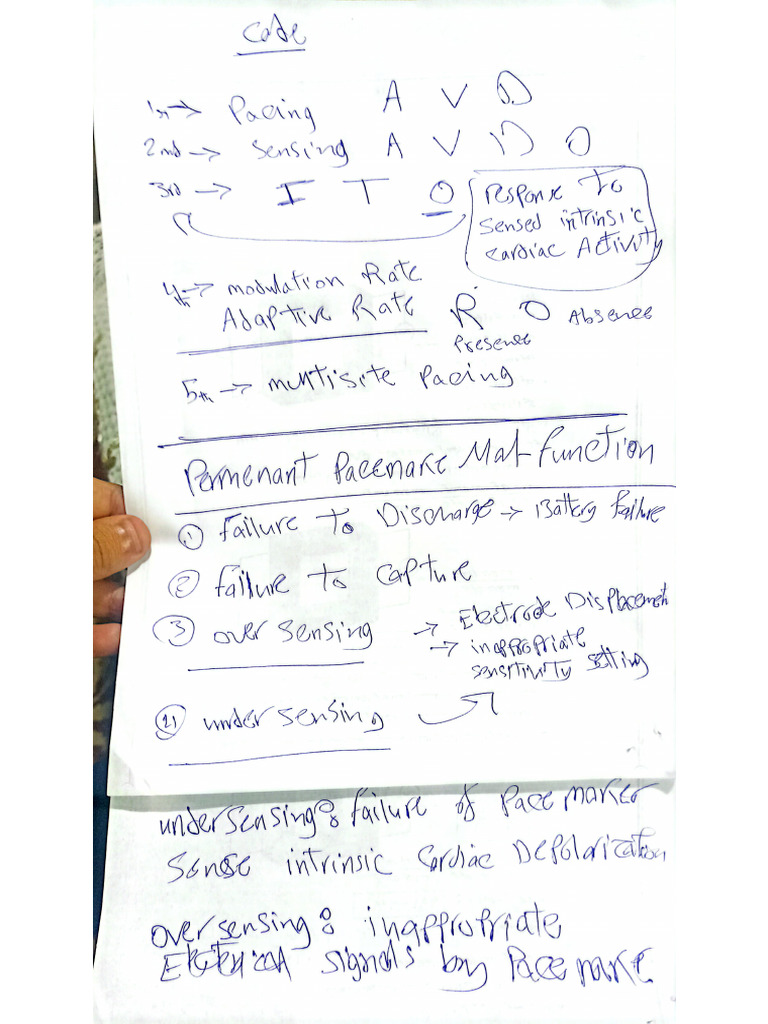 Code
1st → Pacing A V D
2nd → Sensing A V D O
3rd → I T O
response to
sensed intrinsic
cardiac Activity
4th → modulation Rate
Adaptive Rate R O Absence
Presence
5th → multisite Pacing
Permenant Pacemake Malfunction
① failure to Discharge → Battery failure
② failure to capture
③ over sensing → Electrode Displacement
→ inappropriate
sensitivity setting
④ under sensing
undersensing: failure of Pacemaker
Sense intrinsic Cardiac Depolarization
oversensing: inappropriate
Electrical signals by Pacemake